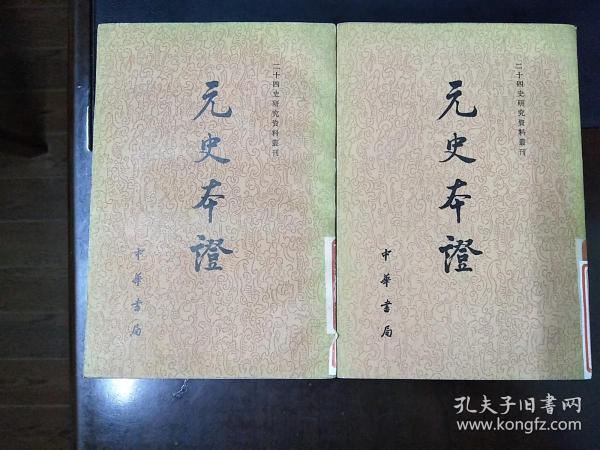 二十四史研究資料叢刊
元史本證
中華書局
二十四史研究資料叢刊
元史本證
中華書局
孔夫子旧书网
www.kongfz.com